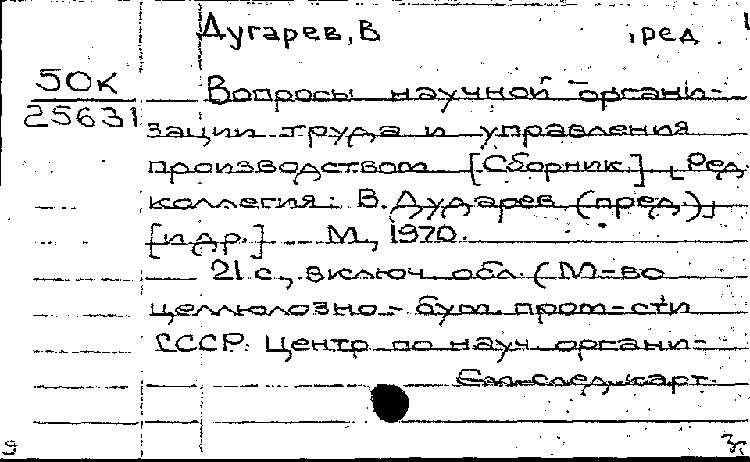 Дугарев, В ,ред.
50к
25631
Вопросы научной органи-
зации труда и управления
производством [Сборник.] Ред.
коллегия: В. Дударев (пред.)
[и др.] М., 1970.
21 с., включ обл. (М-во
целлюлозно-бум. пром-сти
СССР. Центр по науч. органи-
См. след. карт.